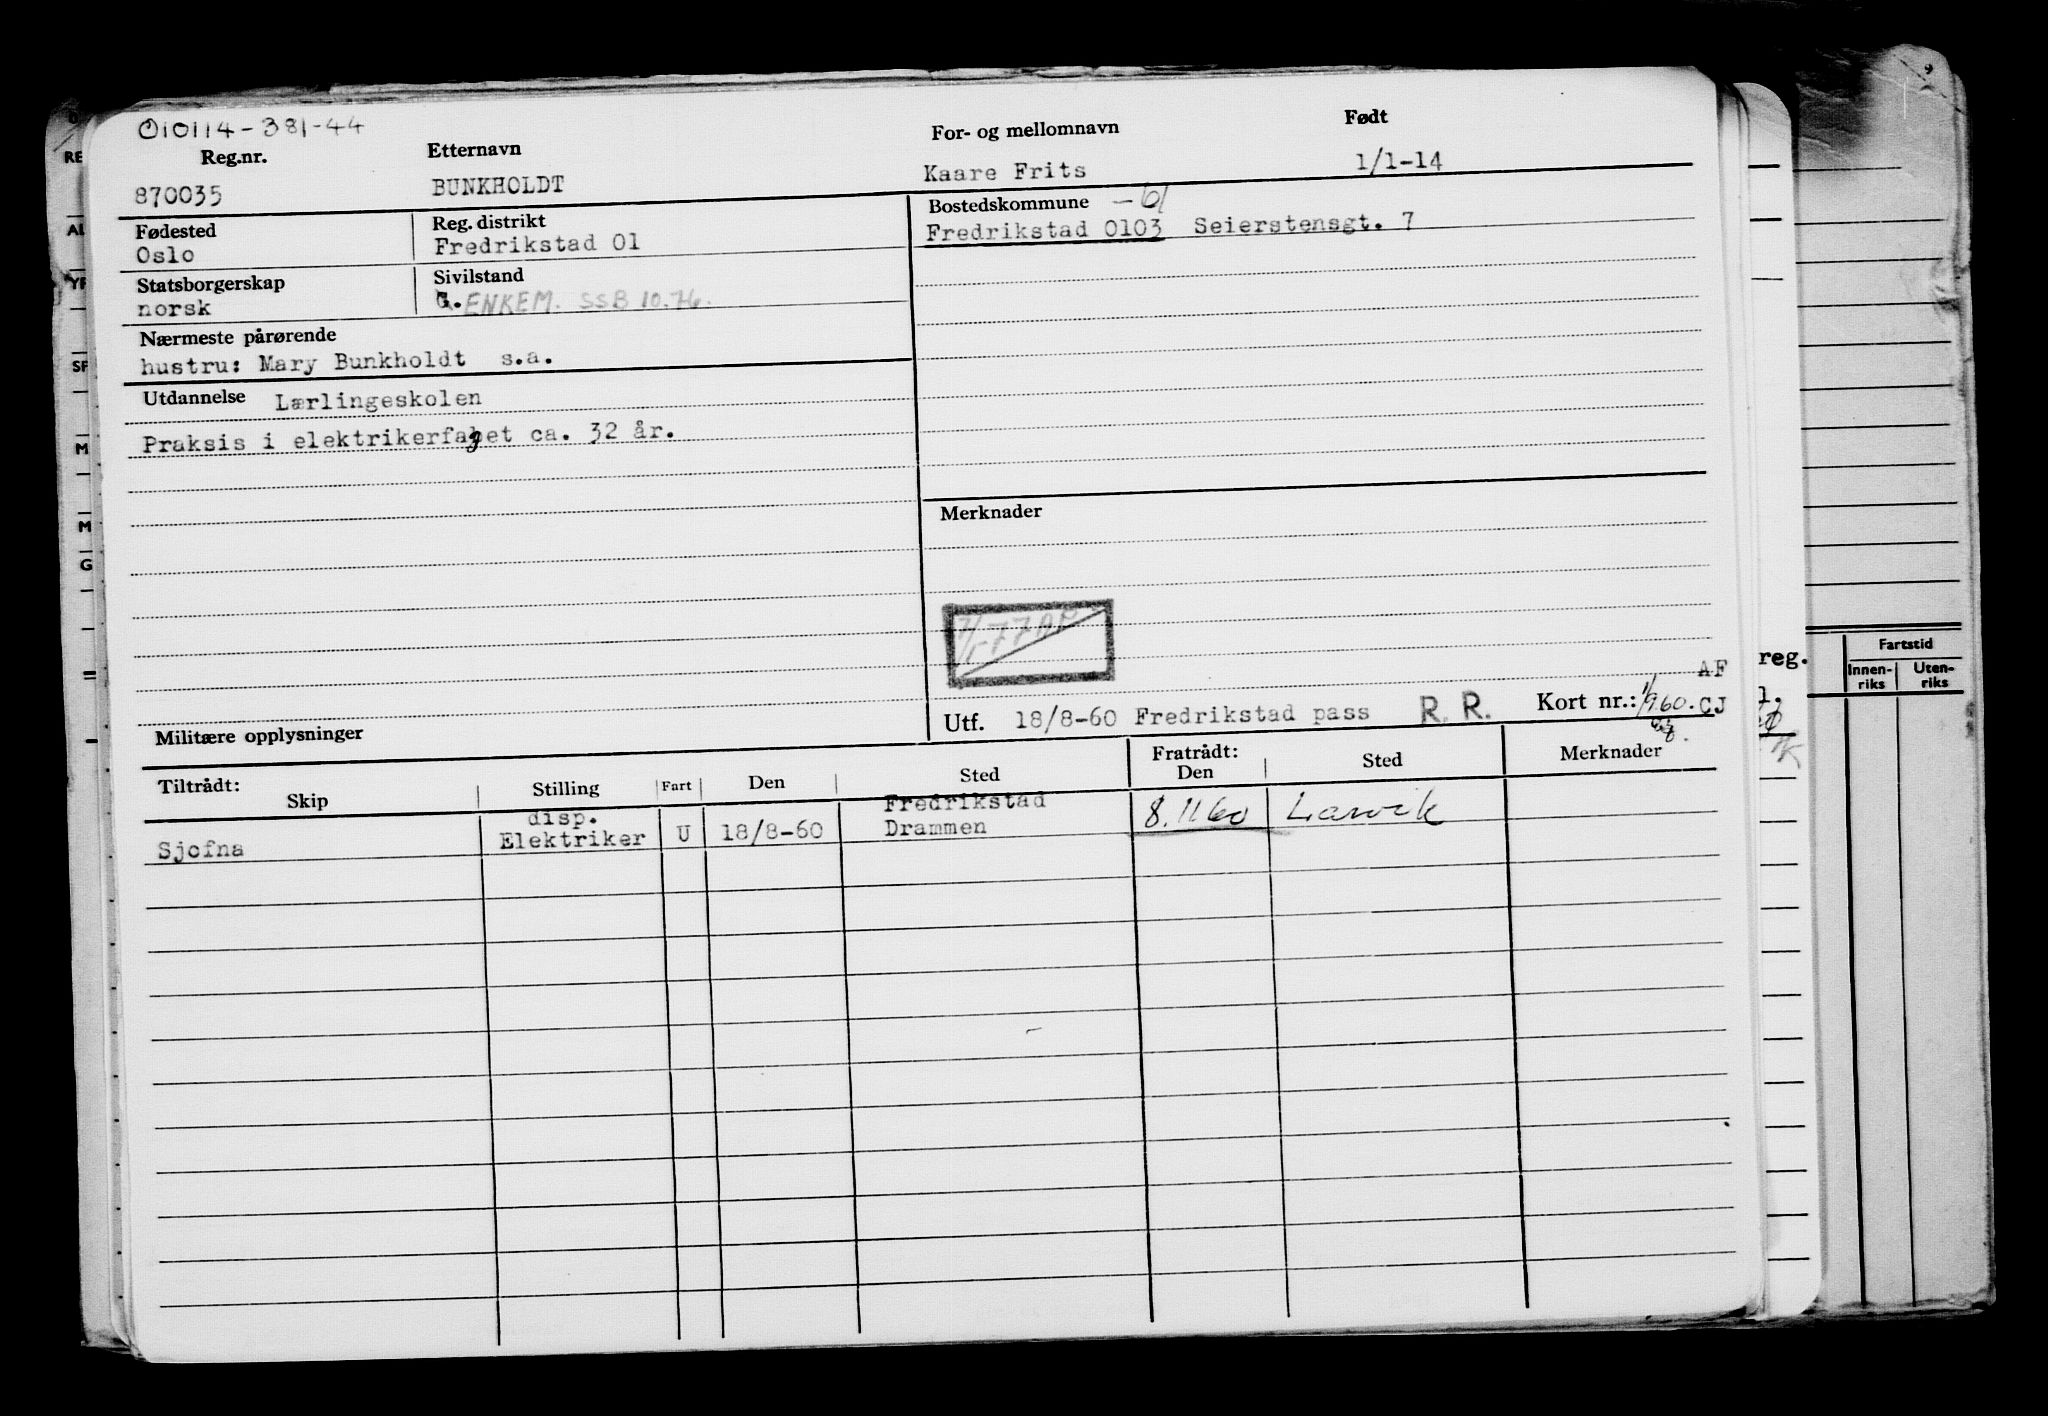 010114-381-44
Reg.nr. Etternavn For- og mellomnavn Født
870035 BUNKHOLDT Kaare Frits 1/1-14
Fødested Reg. distrikt Bostedskommune -61
Oslo Fredrikstad 01 Fredrikstad 0103 Seierstensgt. 7
Statsborgerskap Sivilstand
norsk G. ENKEM. SSB 10.76.
Nærmeste pårørende
hustru: Mary Bunkholdt s.a.
Utdannelse Lærlingeskolen
Praksis i elektrikerfaget ca. 32 år.
Merknader
AF
Utf. 18/8-60 Fredrikstad pass R. R. Kort nr.: 1/960. CJ
Militære opplysninger
Tiltrådt: Fratrådt:
Skip Stilling Fart Den Sted Den Sted Merknader
disp. Fredrikstad
Sjofna Elektriker U 18/8-60 Drammen 8.1160 Larvik
reg.
Fartstid
Innen-
riks
Uten-
riks